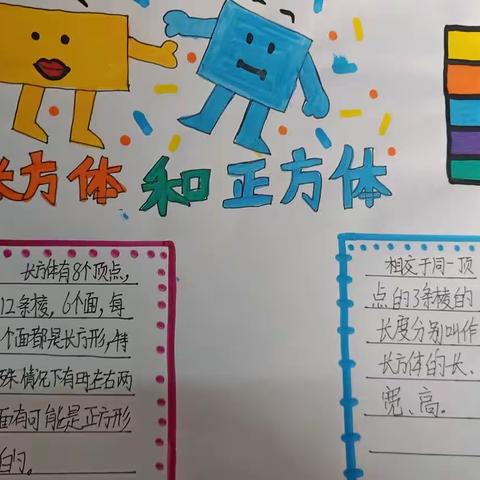 长方体和正方体
长方体有8个顶点,
12条棱,6个面,每
个面都是长方形,特
殊情况下有左右两
面有可能是正方形
的。
相交于同一顶
点的3条棱的
长度分别叫作
长方体的长、
宽、高。